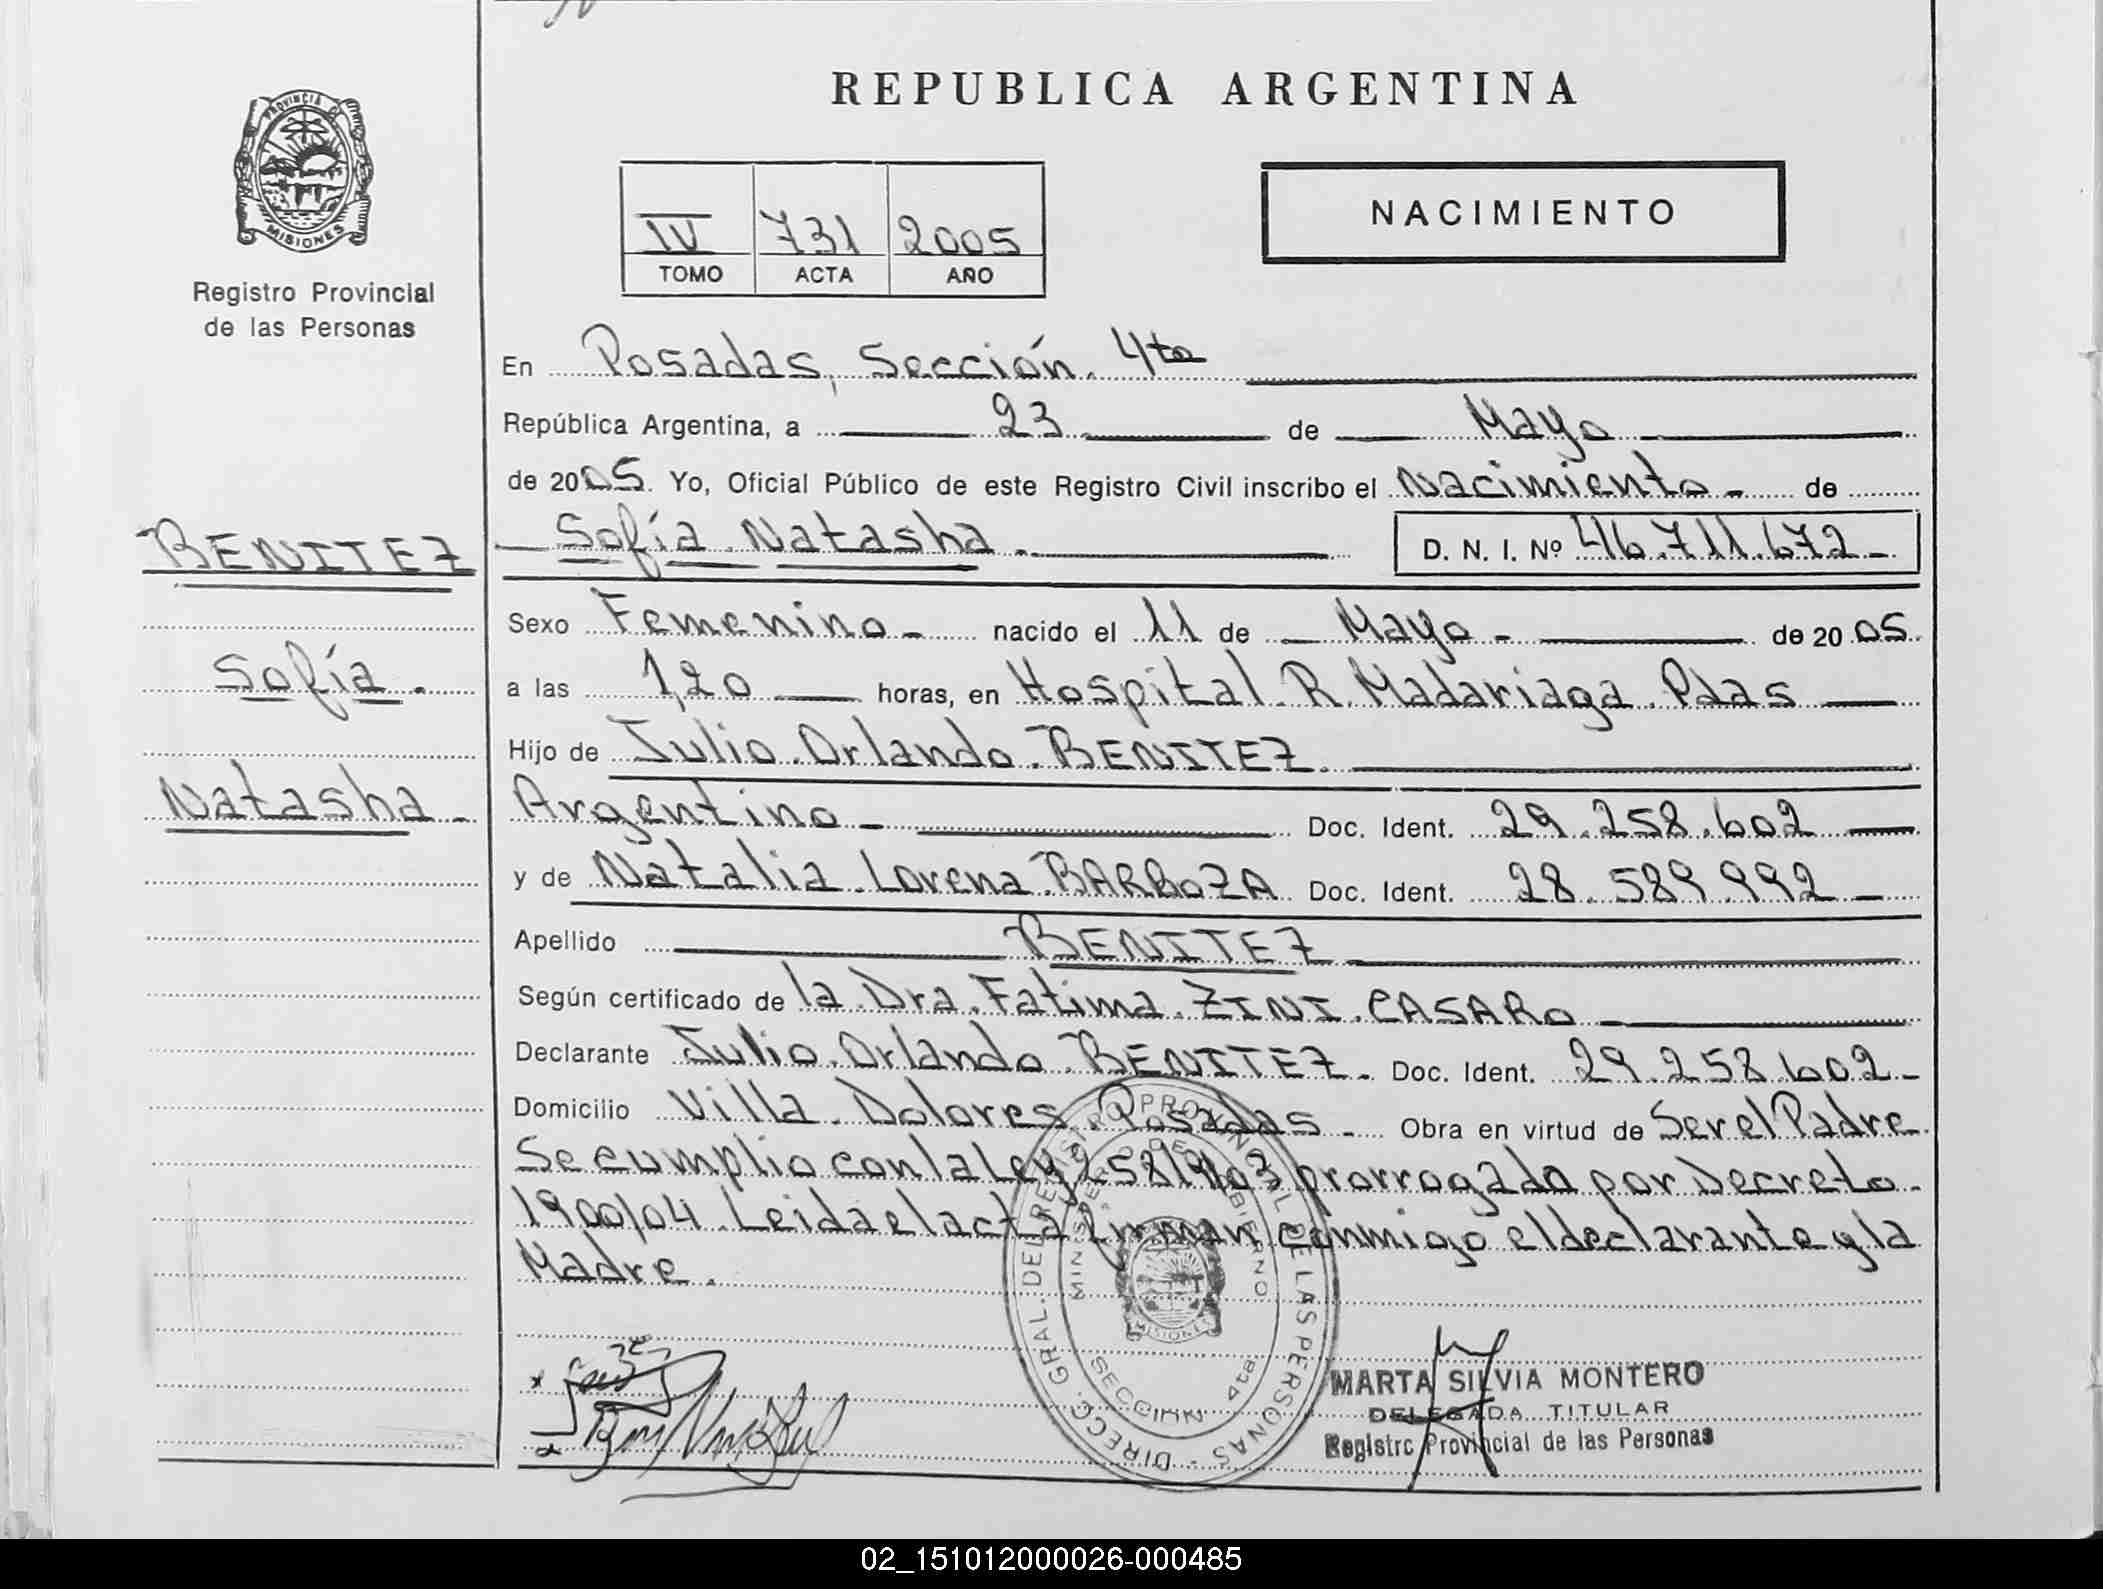 REPUBLICA ARGENTINA
PROVINCIA DE
MISIONES
Registro Provincial
de las Personas
IV 731 2005
TOMO ACTA AÑO
NACIMIENTO
En Posadas, Sección. 4ta
República Argentina, a 23 de Mayo
de 2005. Yo, Oficial Público de este Registro Civil inscribo el Nacimiento - de
BENITEZ
Sofía
Natasha -
Sofía Natasha. D. N. I. Nº 46.711.672 -
Sexo Femenino - nacido el 11 de Mayo - de 2005.
a las 1,20 horas, en Hospital R. Madariaga. Pdas
Hijo de Julio Orlando BENITEZ
Argentino - Doc. Ident. 29.258.602
y de Natalia Lorena BARBOZA Doc. Ident. 28.589.992 -
Apellido BENITEZ
Según certificado de la Dra. Fatima ZINI CASARO
Declarante Julio Orlando BENITEZ - Doc. Ident. 29.258.602 -
Domicilio Villa Dolores. Posadas - Obra en virtud de Ser el Padre
Se cumplio con la Ley 25819/03 prorrogado por Decreto
1900/04. Leida el acta firman conmigo el declarante y la
Madre.
DIRECC. GRAL. DEL REGISTRO PROVINCIAL DE LAS PERSONAS
MINISTERIO DE GOBIERNO
MISIONES
SECCION 4ta
MARTA SILVIA MONTERO
DELEGADA TITULAR
Registro Provincial de las Personas
02_151012000026-000485